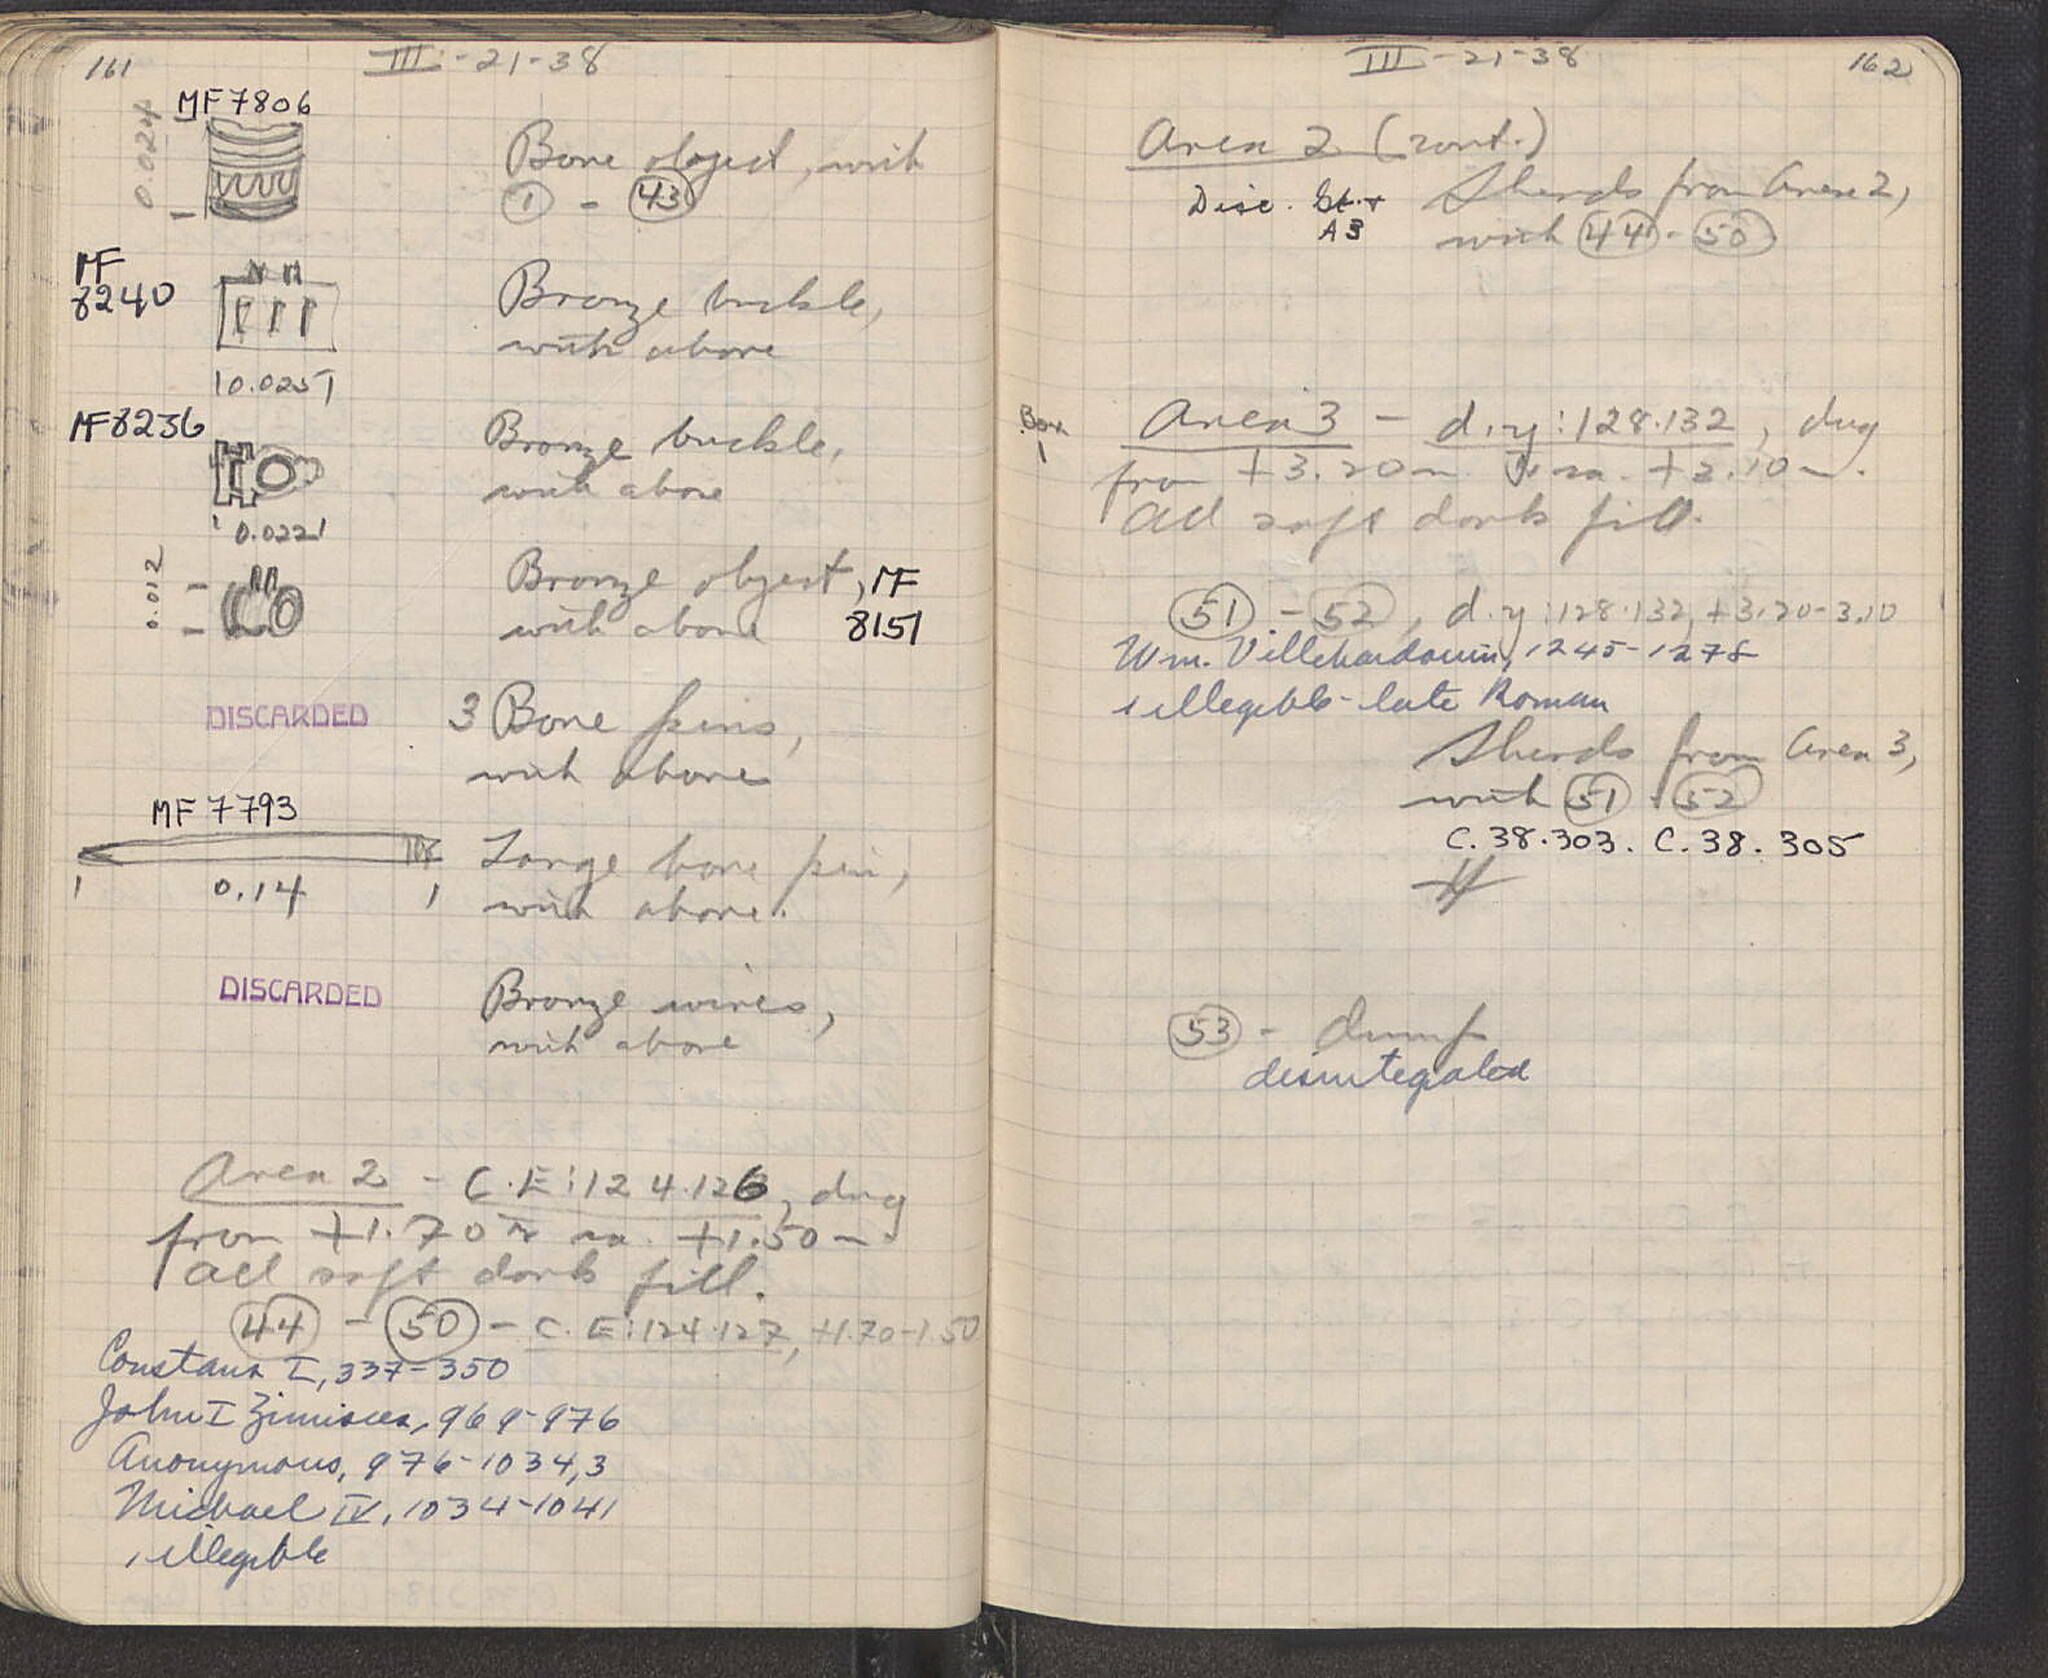 161
III - 21-38
MF 7806
0.024
Bone object, with
1 - 43
MF
8240
Bronze buckle,
with above
0.025
MF 8236
Bronze buckle,
with above
0.022
0.012
Bronze object, MF
with above 8151
DISCARDED
3 Bone pins,
with above
MF 7793
Large bone pin,
with above.
0.14
DISCARDED
Bronze wires,
with above
Area 2 - C.E:124.126, dug
from +1.70m ca. +1.50m
All soft dark fill.
44 - 50 - C.E:124.127, +1.70-1.50
Constans I, 337-350
John I Zimisces, 969-976
Anonymous, 976-1034, 3
Michael IV, 1034-1041
1 illegible
III - 21-38
162
Area 2 (cont.)
Disc. St.
A3
Sherds from Area 2,
with 44 - 50
Box
1
Area 3 - d.y:128.132, dug
from +3.20m to ca. +2.10m.
All soft dark fill.
51 - 52, d.y:128.132, +3.20-3.10
Wm. Villehardouin, 1245-1278
1 illegible - late Roman
Sherds from Area 3,
with 51 - 52
C.38.303. C.38.305
53 - dump
disintegrated